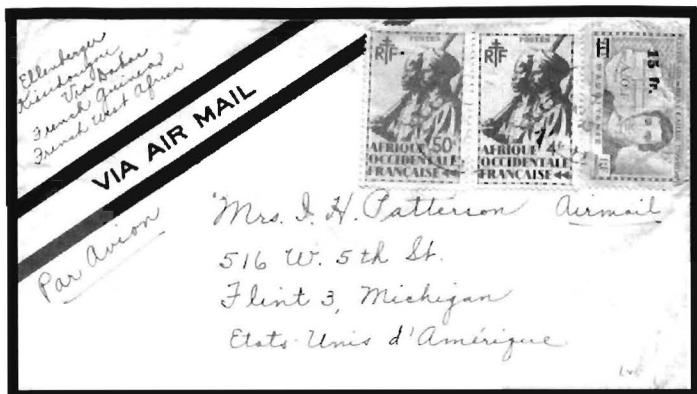 Ellenberger
Kissidougou
Via Dakar
French Guinea
French West Africa
VIA AIR MAIL
Par Avion
POSTES
RF
50
AFRIQUE
OCCIDENTALE
FRANÇAISE
POSTES
RF
4F
AFRIQUE
OCCIDENTALE
FRANÇAISE
15 fr.
Mrs. I. H. Patterson Airmail
516 W. 5th St.
Flint 3, Michigan
Etats-Unis d'Amérique